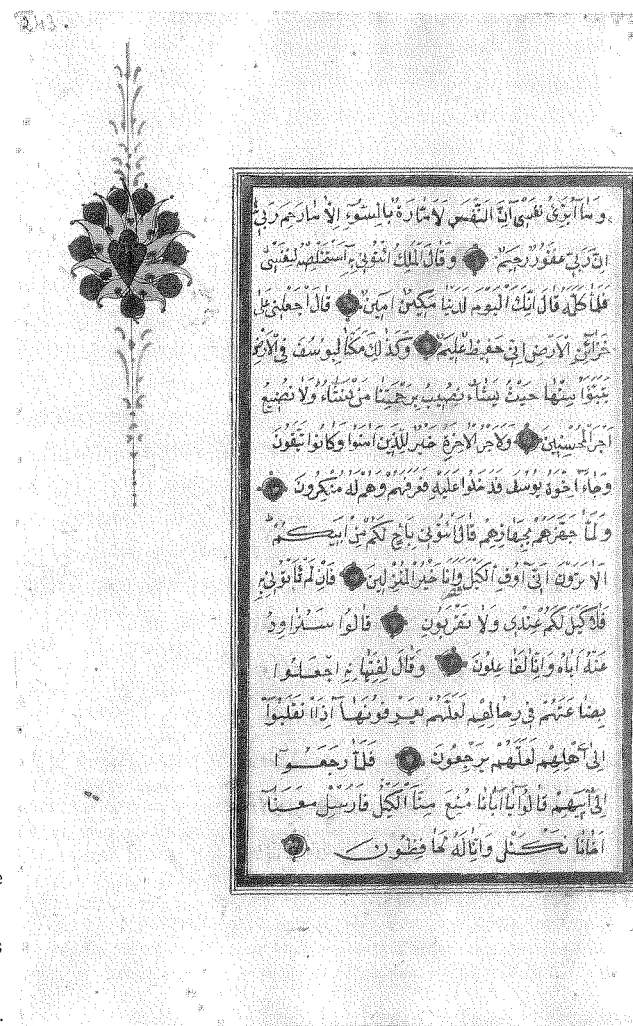 243.
وَمَآ اُبَرِّئُ نَفْسٖى اِنَّ النَّفْسَ لَاَمَّارَةٌ بِالسُّوٓءِ اِلَّا مَارَحِمَ رَبّٖى
اِنَّ رَبّٖى غَفُورٌ رَحٖيمٌ وَقَالَ الْمَلِكُ ائْتُونٖى بِهٖٓ اَسْتَخْلِصْهُ لِنَفْسٖى
فَلَمَّا كَلَّمَهُ قَالَ اِنَّكَ الْيَوْمَ لَدَيْنَا مَكٖينٌ اَمٖينٌ قَالَ اجْعَلْنٖى عَلٰى
خَزَآئِنِ الْاَرْضِ اِنّٖى حَفٖيظٌ عَلٖيمٌ وَكَذٰلِكَ مَكَّنَّا لِيُوسُفَ فِى الْاَرْضِ
يَتَبَوَّاُ مِنْهَا حَيْثُ يَشَآءُ نُصٖيبُ بِرَحْمَتِنَا مَنْ نَشَآءُ وَلَا نُضٖيعُ
اَجْرَ الْمُحْسِنٖينَ وَلَاَجْرُ الْاٰخِرَةِ خَيْرٌ لِلَّذٖينَ اٰمَنُوا وَكَانُوا يَتَّقُونَ
وَجَآءَ اِخْوَةُ يُوسُفَ فَدَخَلُوا عَلَيْهِ فَعَرَفَهُمْ وَهُمْ لَهُ مُنْكِرُونَ
وَلَمَّا جَهَّزَهُمْ بِجَهَازِهِمْ قَالَ ائْتُونٖى بِاَخٍ لَكُمْ مِنْ اَبٖيكُمْ
اَلَا تَرَوْنَ اَنّٖٓى اُوفِى الْكَيْلَ وَاَنَا خَيْرُ الْمُنْزِلٖينَ فَاِنْ لَمْ تَاْتُونٖى بِهٖ
فَلَا كَيْلَ لَكُمْ عِنْدٖى وَلَا تَقْرَبُونِ قَالُوا سَنُرَاوِدُ
عَنْهُ اَبَاهُ وَاِنَّا لَفَاعِلُونَ وَقَالَ لِفِتْيَانِهِ اجْعَلُوا
بِضَاعَتَهُمْ فٖى رِحَالِهِمْ لَعَلَّهُمْ يَعْرِفُونَهَآ اِذَا انْقَلَبُوٓا
اِلٰٓى اَهْلِهِمْ لَعَلَّهُمْ يَرْجِعُونَ فَلَمَّا رَجَعُوٓا
اِلٰٓى اَبٖيهِمْ قَالُوا يَٓا اَبَانَا مُنِعَ مِنَّا الْكَيْلُ فَاَرْسِلْ مَعَنَآ
اَخَانَا نَكْتَلْ وَاِنَّا لَهُ لَحَافِظُونَ